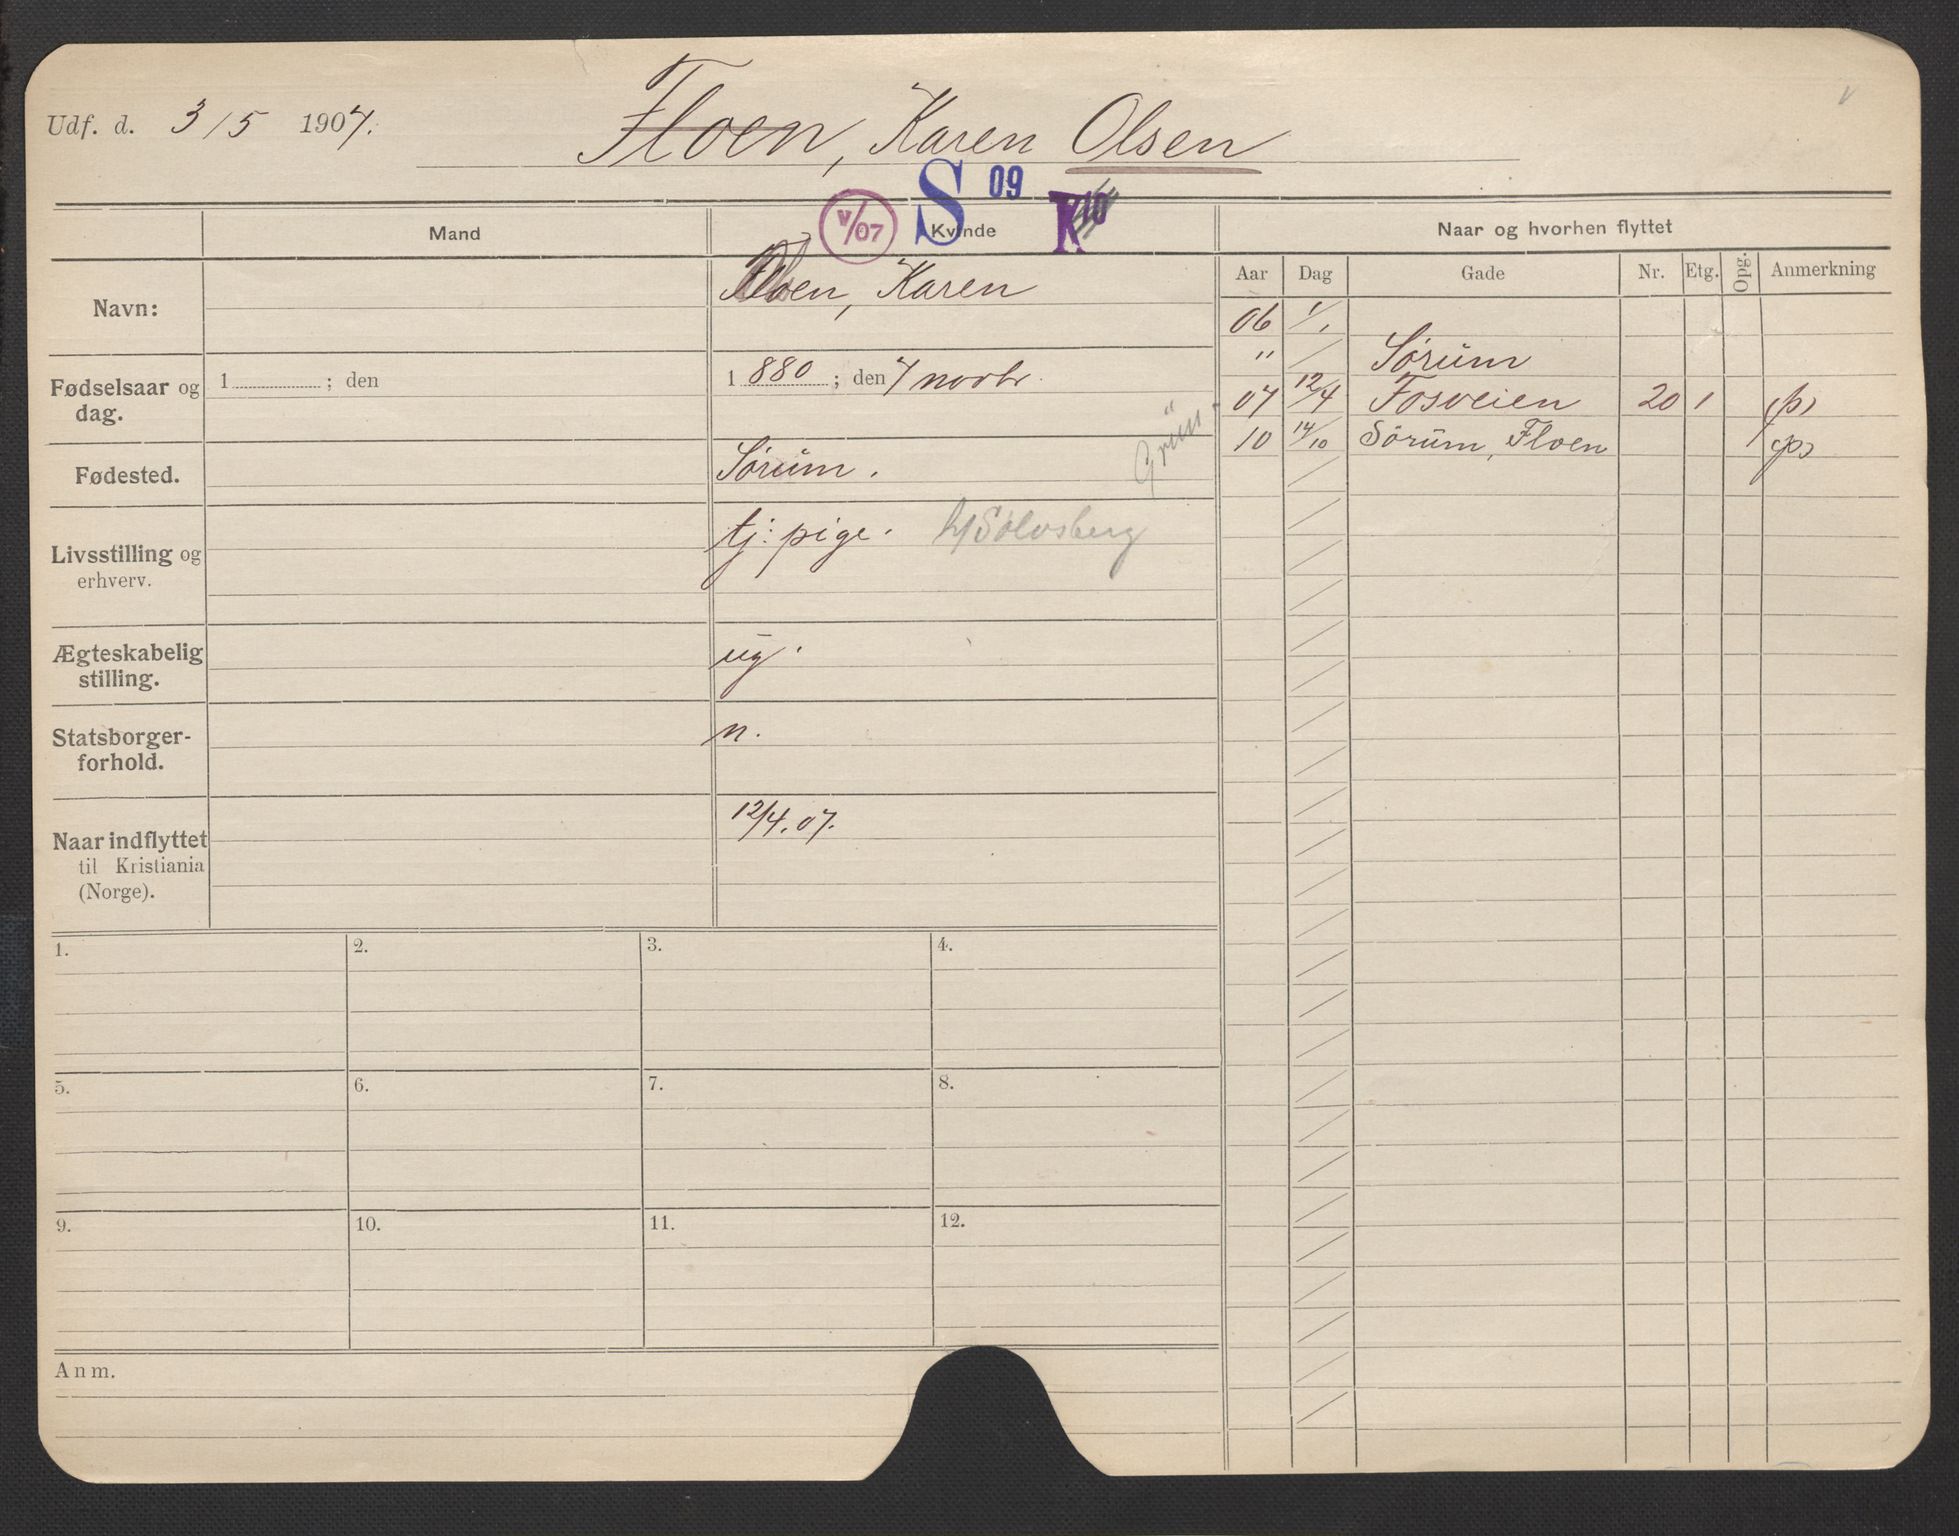 Udf. d. 3/5 1907. Floen, Karen Olsen
V/07 S 09 K 10
Mand Kvinde Naar og hvorhen flyttet
Aar Dag Gade Nr. Etg. Opg. Anmerkning
Navn: Floen, Karen
06 1/1
" Sørum
Fødselsaar og dag. 1 ; den 1 880 ; den 7 novbr.
07 12/4 Fosveien 20 1 (p)
10 14/10 Sørum, Floen (p)
Fødested. Sørum.
Grün
Livsstilling og erhverv. tj: pige. h/Sølvsberg
Ægteskabelig stilling. ug.
Statsborger-
forhold. n.
Naar indflyttet
til Kristiania
(Norge). 12/4.07.
1. 2. 3. 4.
5. 6. 7. 8.
9. 10. 11. 12.
Anm.